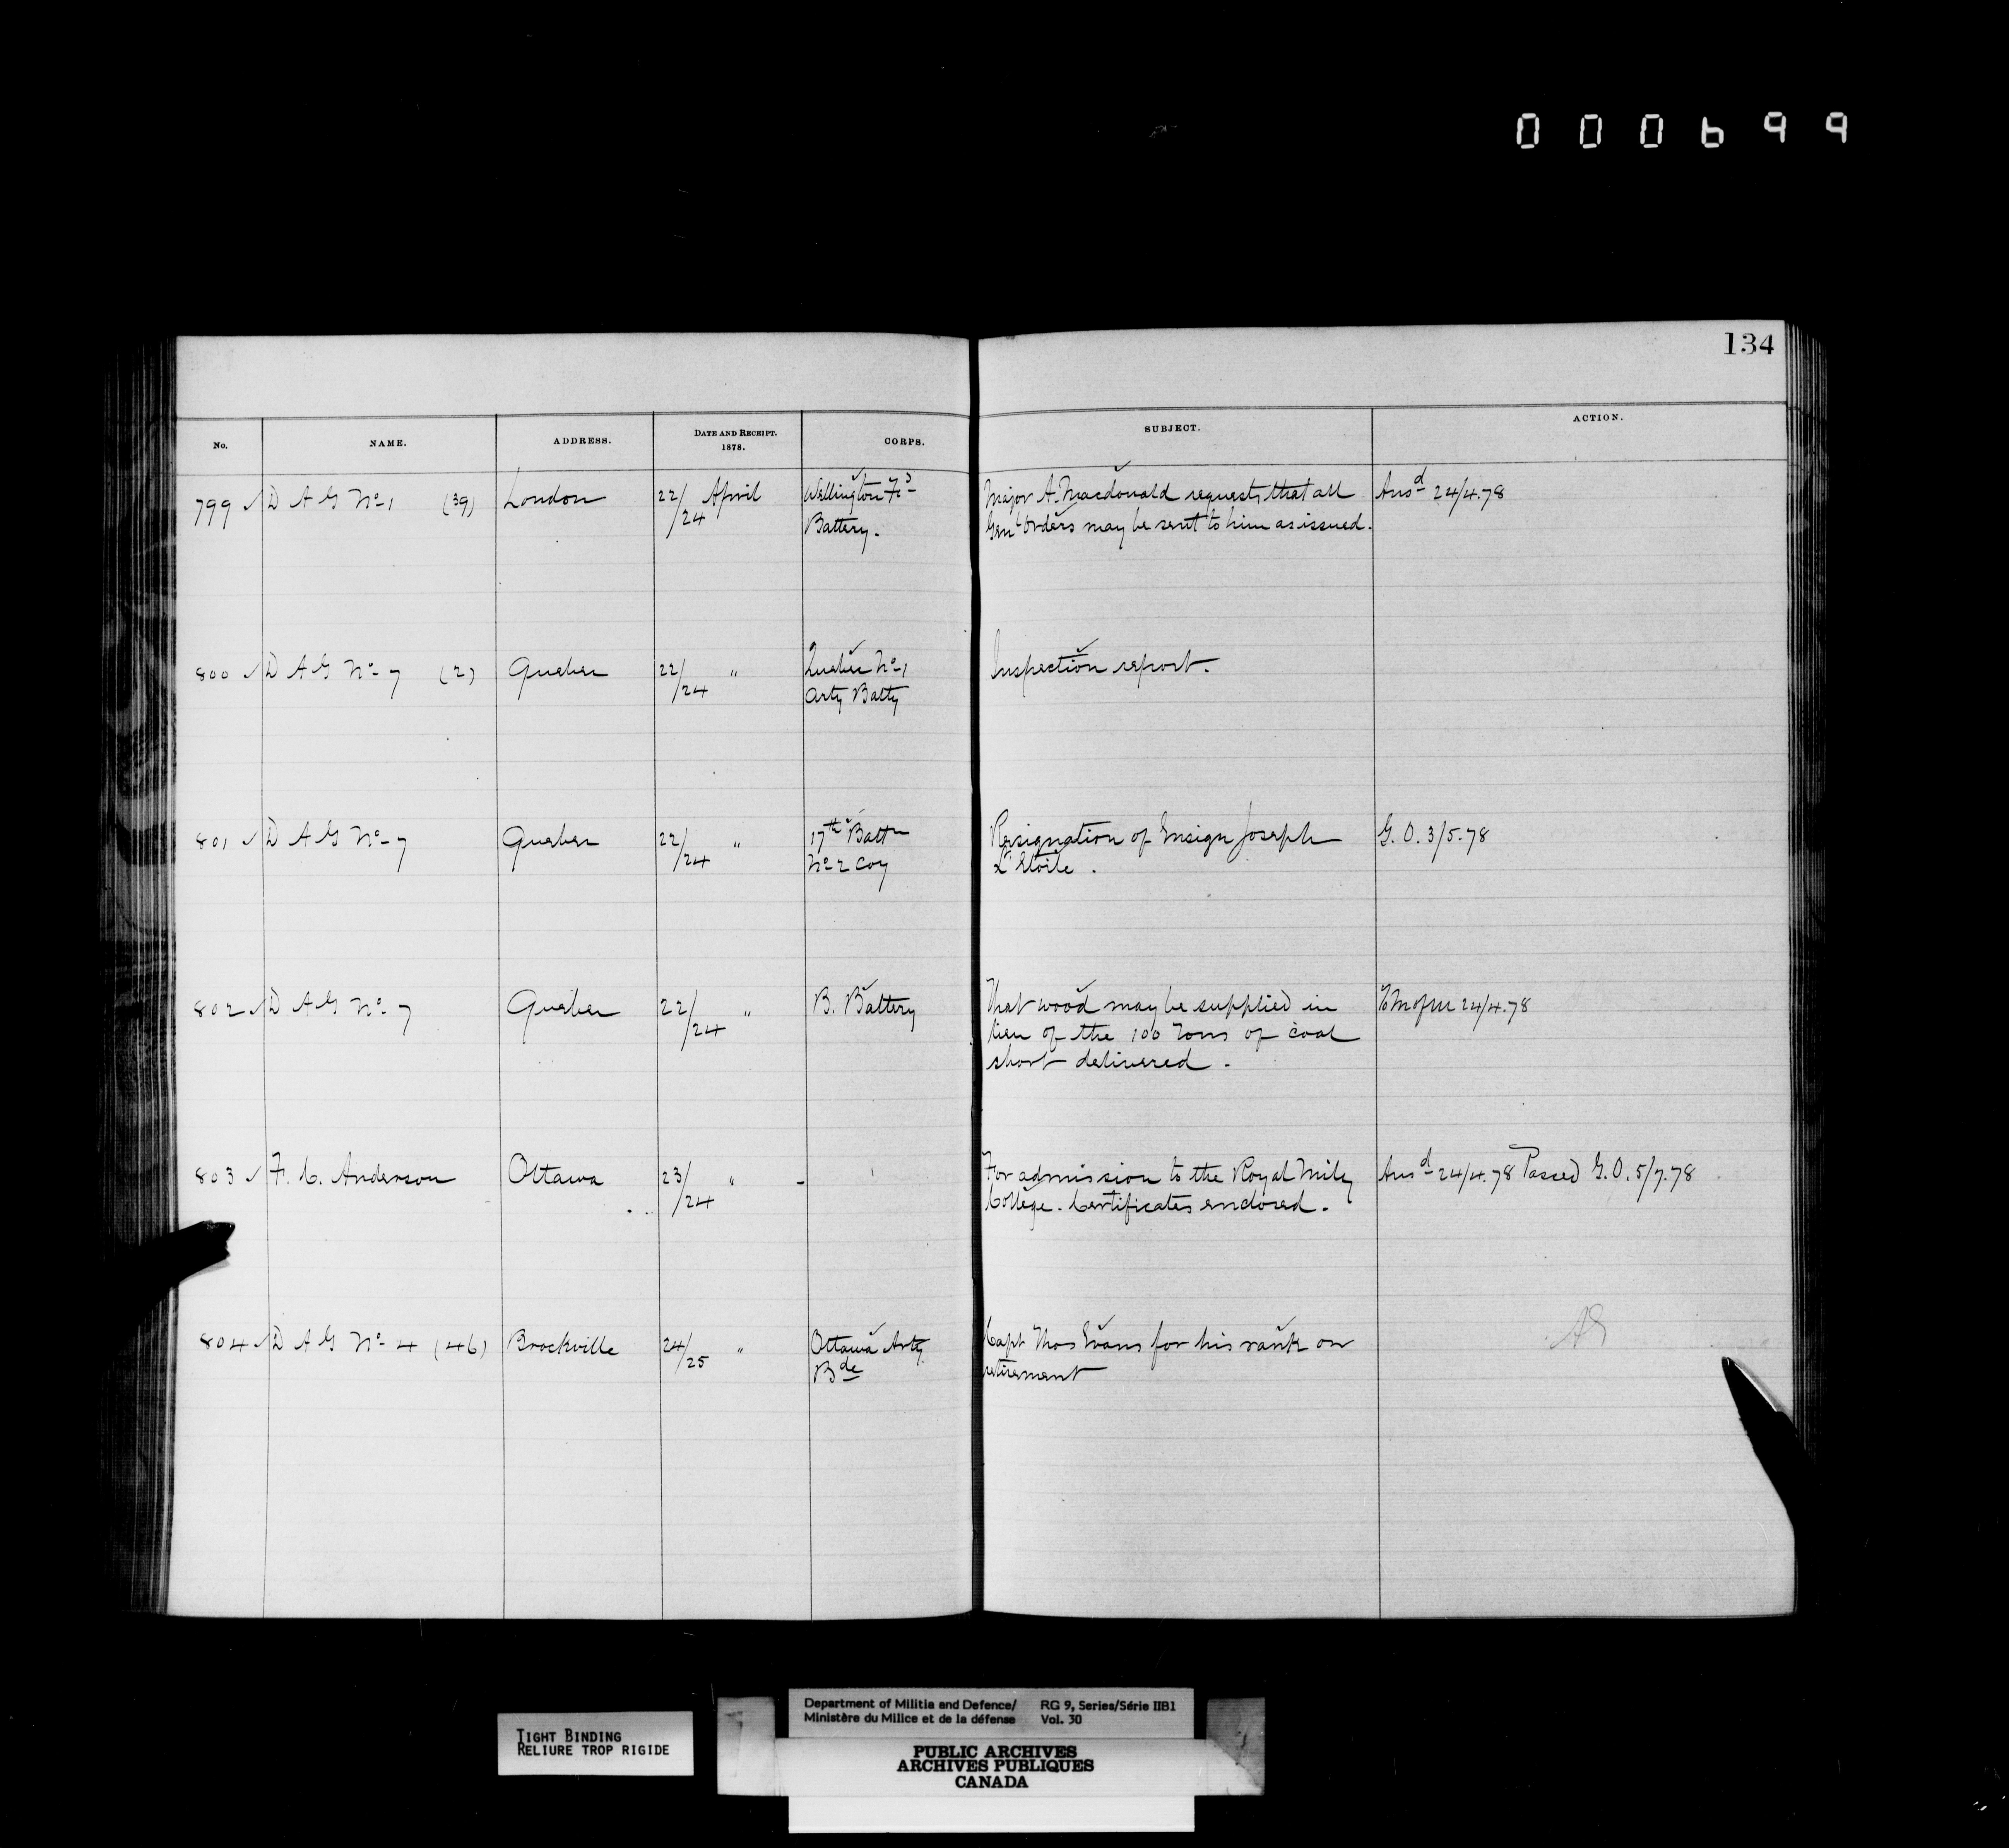 000699
134
No. NAME. ADDRESS. DATE AND RECEIPT. 1878. CORPS. SUBJECT. ACTION.
799 ✓ D A G No 1 (39) London 22/24 April Wellington Fd Battery. Major A. Macdonald requests that all Ansd 24/4.78
Genl Orders may be sent to him as issued.
800 ✓ D A G No 7 (2) Quebec 22/24 " Quebec No 1 Inspection report.
Arty Batty
801 ✓ D A G No 7 Quebec 22/24 " 17th Battn Resignation of Ensign Joseph G. O. 3/5.78
No 2 Coy L'Etoile.
802 ✓ D A G No 7 Quebec 22/24 " B. Battery That wood may be supplied in To M of M 24/4.78
lieu of the 100 Tons of coal
short delivered.
803 ✓ F. C. Anderson Ottawa 23/24 " - For admission to the Royal Mily Ansd 24/4.78 Passed G. O. 5/7.78
College. Certificates enclosed.
804 ✓ D A G No 4 (46) Brockville 24/25 " Ottawa Arty Capt Thos Evans for his rank on
Bde retirement
TIGHT BINDING
RELIURE TROP RIGIDE
Department of Militia and Defence/ RG 9, Series/Série IIB1
Ministère du Milice et de la défense Vol. 30
PUBLIC ARCHIVES
ARCHIVES PUBLIQUES
CANADA